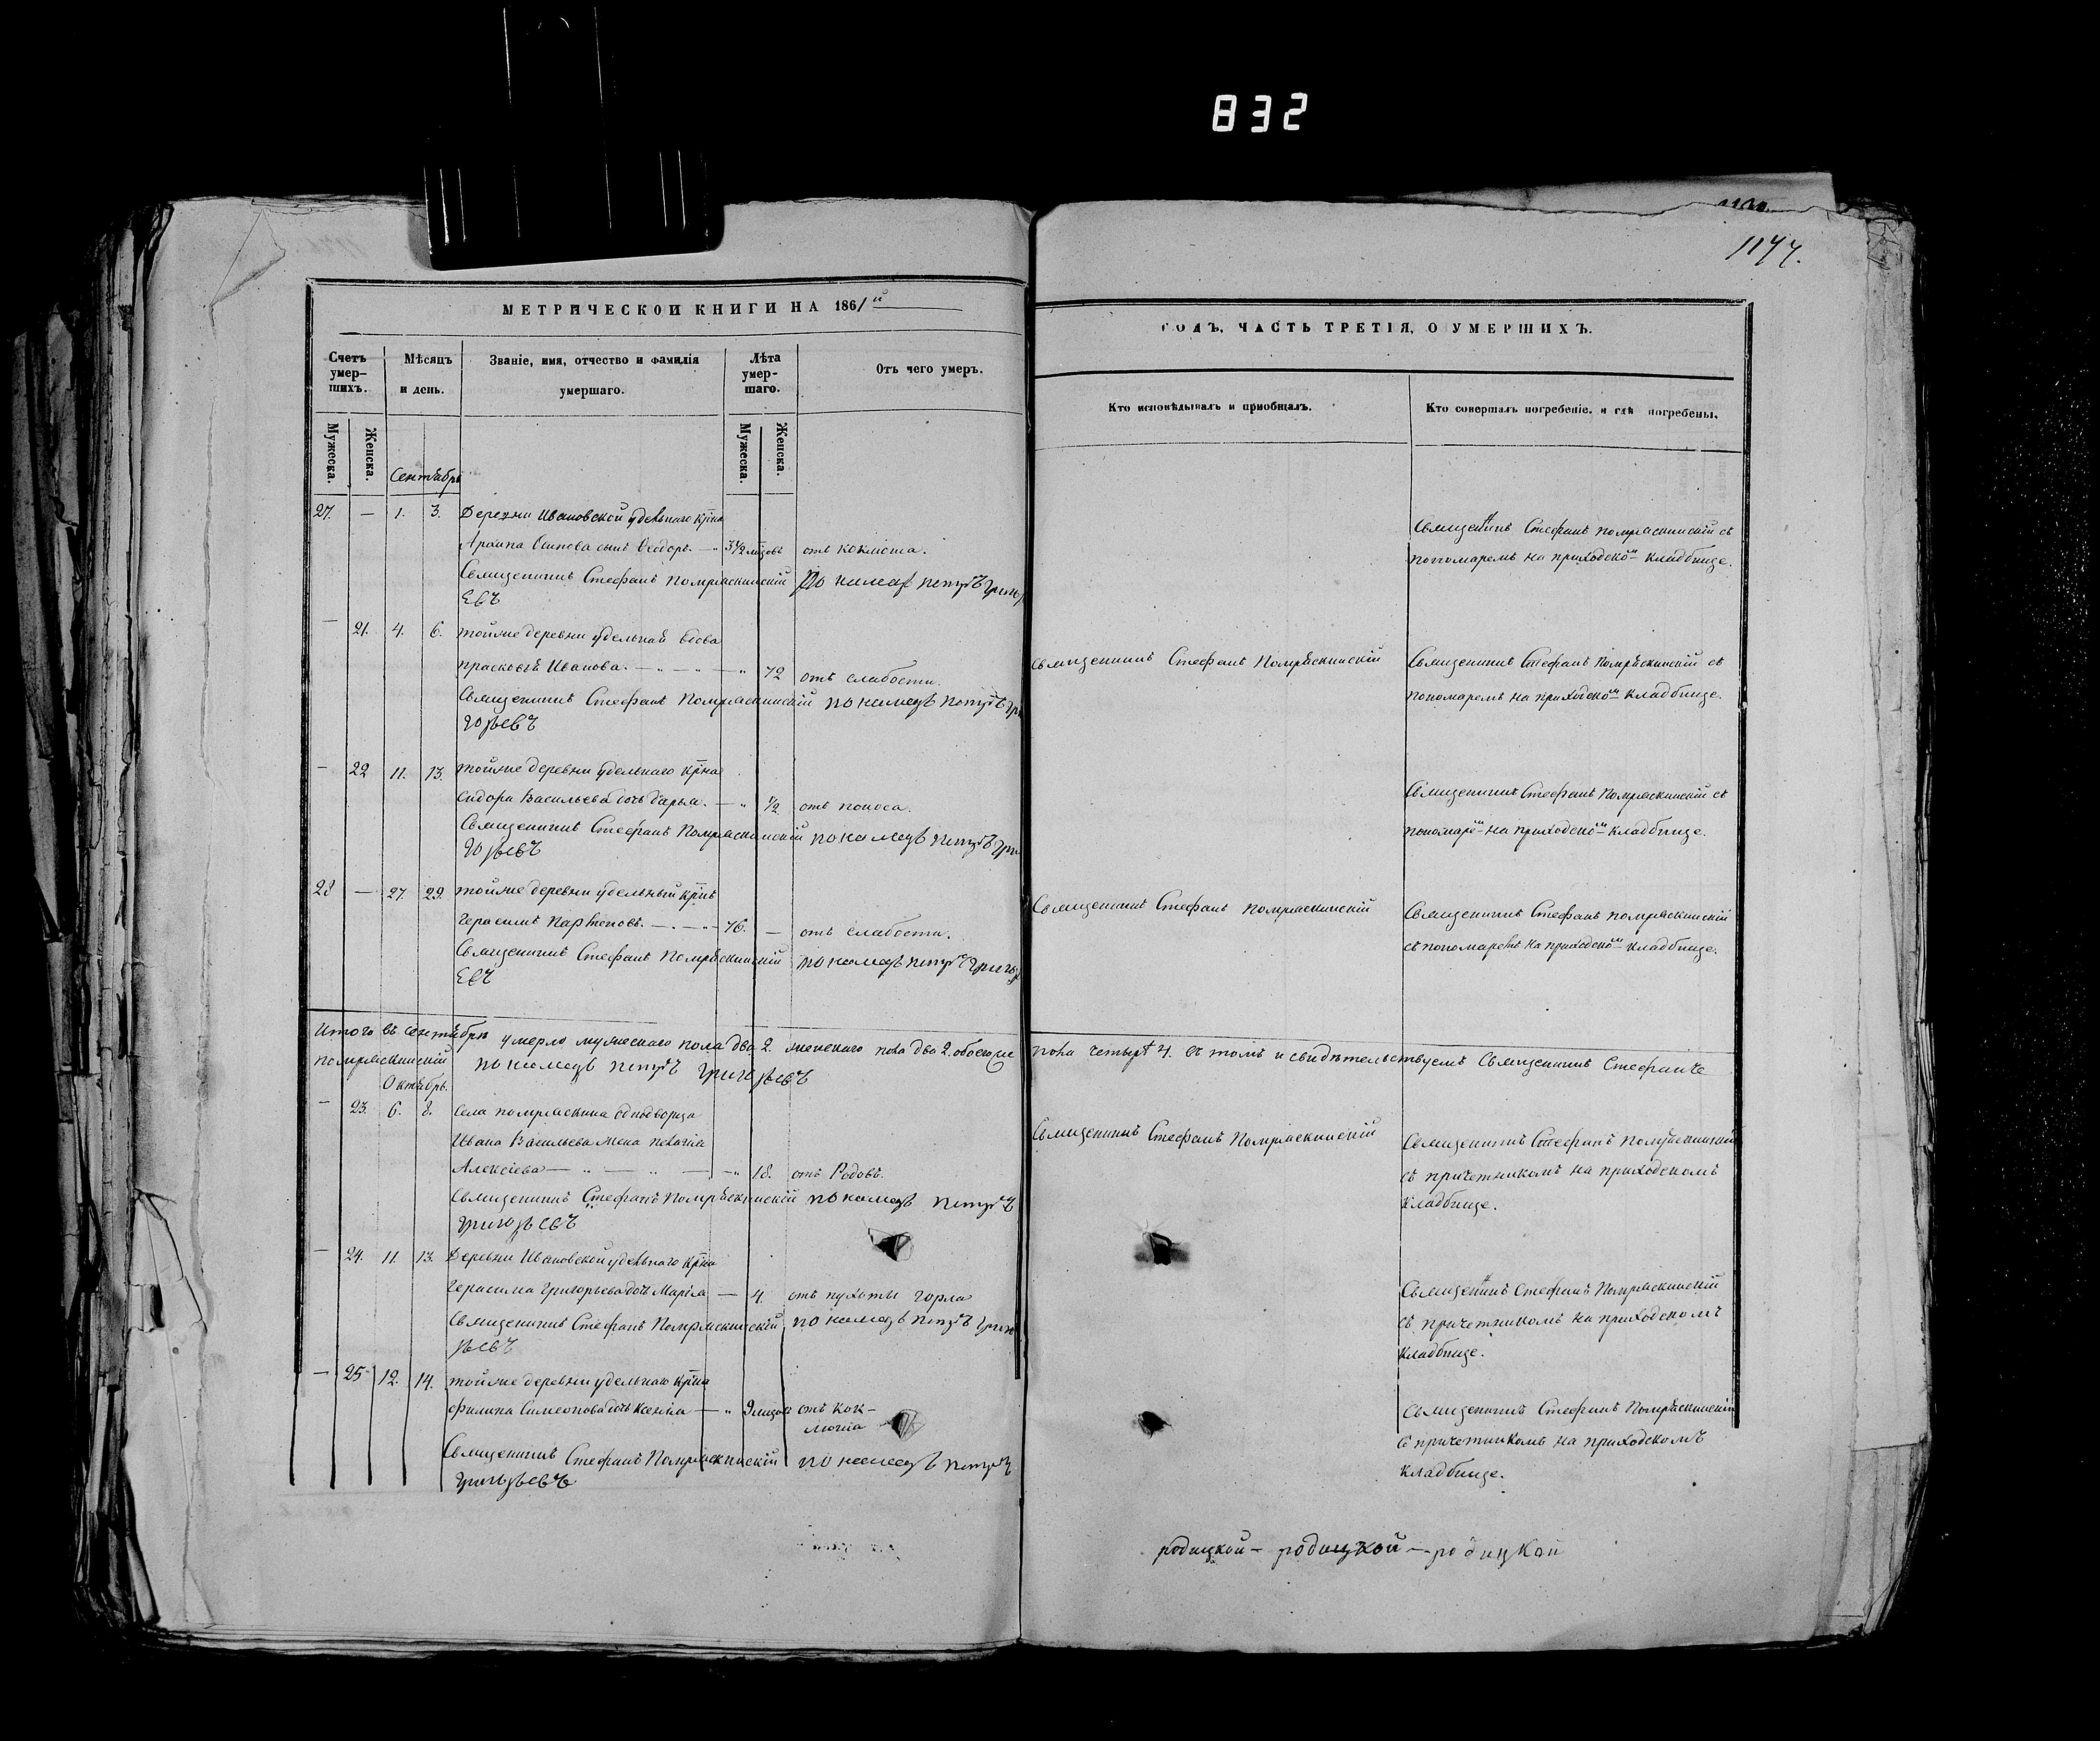 832
1177.
МЕТРИЧЕСКОЙ КНИГИ НА 1861й
ГОДЪ, ЧАСТЬ ТРЕТІЯ, О УМЕРШИХЪ.
Счетъ умер-шихъ.
Мѣсяцъ и день.
Званіе, имя, отчество и фамилія умершаго.
Лѣта умер-шаго.
Отъ чего умеръ.
Кто исповѣдывалъ и пріобщалъ.
Кто совершалъ погребеніе, и гдѣ погребены.
Мужеска.
Женска.
Мужеска.
Женска.
Сентябрь
27. — 1. 3. Деревни Ивановской удельнаго крна
Архипа Осипова сынъ Ѳеодоръ. — 3½ мцовъ отъ коклюша.
Священникъ Стефанъ Помряскинскій
евъ
Священникъ Стефанъ Помряскинскій съ
пономаремъ на приходском кладбище.
— 21. 4. 6. тойже деревни удельная вдова
Прасковья Иванова. — 72 отъ слабости.
Священникъ Стефанъ Помряскинскій пономарь Петръ Гри
горьевъ
Священникъ Стефанъ Помряскинскій
Священникъ Стефанъ Помряскинскій съ
пономаремъ на приходском кладбище.
— 22 11. 13. тойже деревни удельнаго крна
Сидора Васильева дочь Дарья. — ½ отъ поноса.
Священникъ Стефанъ Помряскинскій пономарь Петръ Гри
горьевъ
Священникъ Стефанъ Помряскинскій съ
пономарем на приходском кладбище.
28 — 27. 29. тойже деревни удельный крнъ
Герасимъ Парѳеновъ. — 76. — отъ слабости.
Священникъ Стефанъ Помряскинскій пономарь Петръ Григорь
евъ
Священникъ Стефанъ Помряскинскій
Священникъ Стефанъ Помряскинскій
съ пономаремъ на приходском кладбище.
Итого въ сентябрѣ умерло мужескаго пола два 2. женскаго пола два 2. обоего же пола четыре 4. въ томъ и свидѣтельствуемъ Священникъ Стефанъ
Помряскинскій пономарь Петръ Григорьевъ
Октябрь.
— 23. 6. 8. Села Помряскина однодворца
Ивана Васильева жена Пелагія
Алексіева — 18. отъ Родовъ.
Священникъ Стефанъ Помряскинскій пономарь Петръ
Григорьевъ
Священникъ Стефанъ Помряскинскій
Священникъ Стефанъ Помряскинскій
съ причетникомъ на приходскомъ
кладбище.
— 24. 11. 13. Деревни Ивановской удельнаго крна
Герасима Григорьева дочь Марія — 4. отъ пухоты горла
Священникъ Стефанъ Помряскинскій пономарь Петръ Григо
рьевъ
Священникъ Стефанъ Помряскинскій
съ причетникомъ на приходскомъ
кладбище.
— 25 12. 14. тойже деревни удельнаго крна
Филипа Симеонова дочь Ксенія — 9 мцовъ отъ кок-
люша
Священникъ Стефанъ Помряскинскій пономарь Петръ
Григорьевъ
Священникъ Стефанъ Помряскинскій
съ причетникомъ на приходскомъ
кладбище.
родицкой — родицкой — родицкой